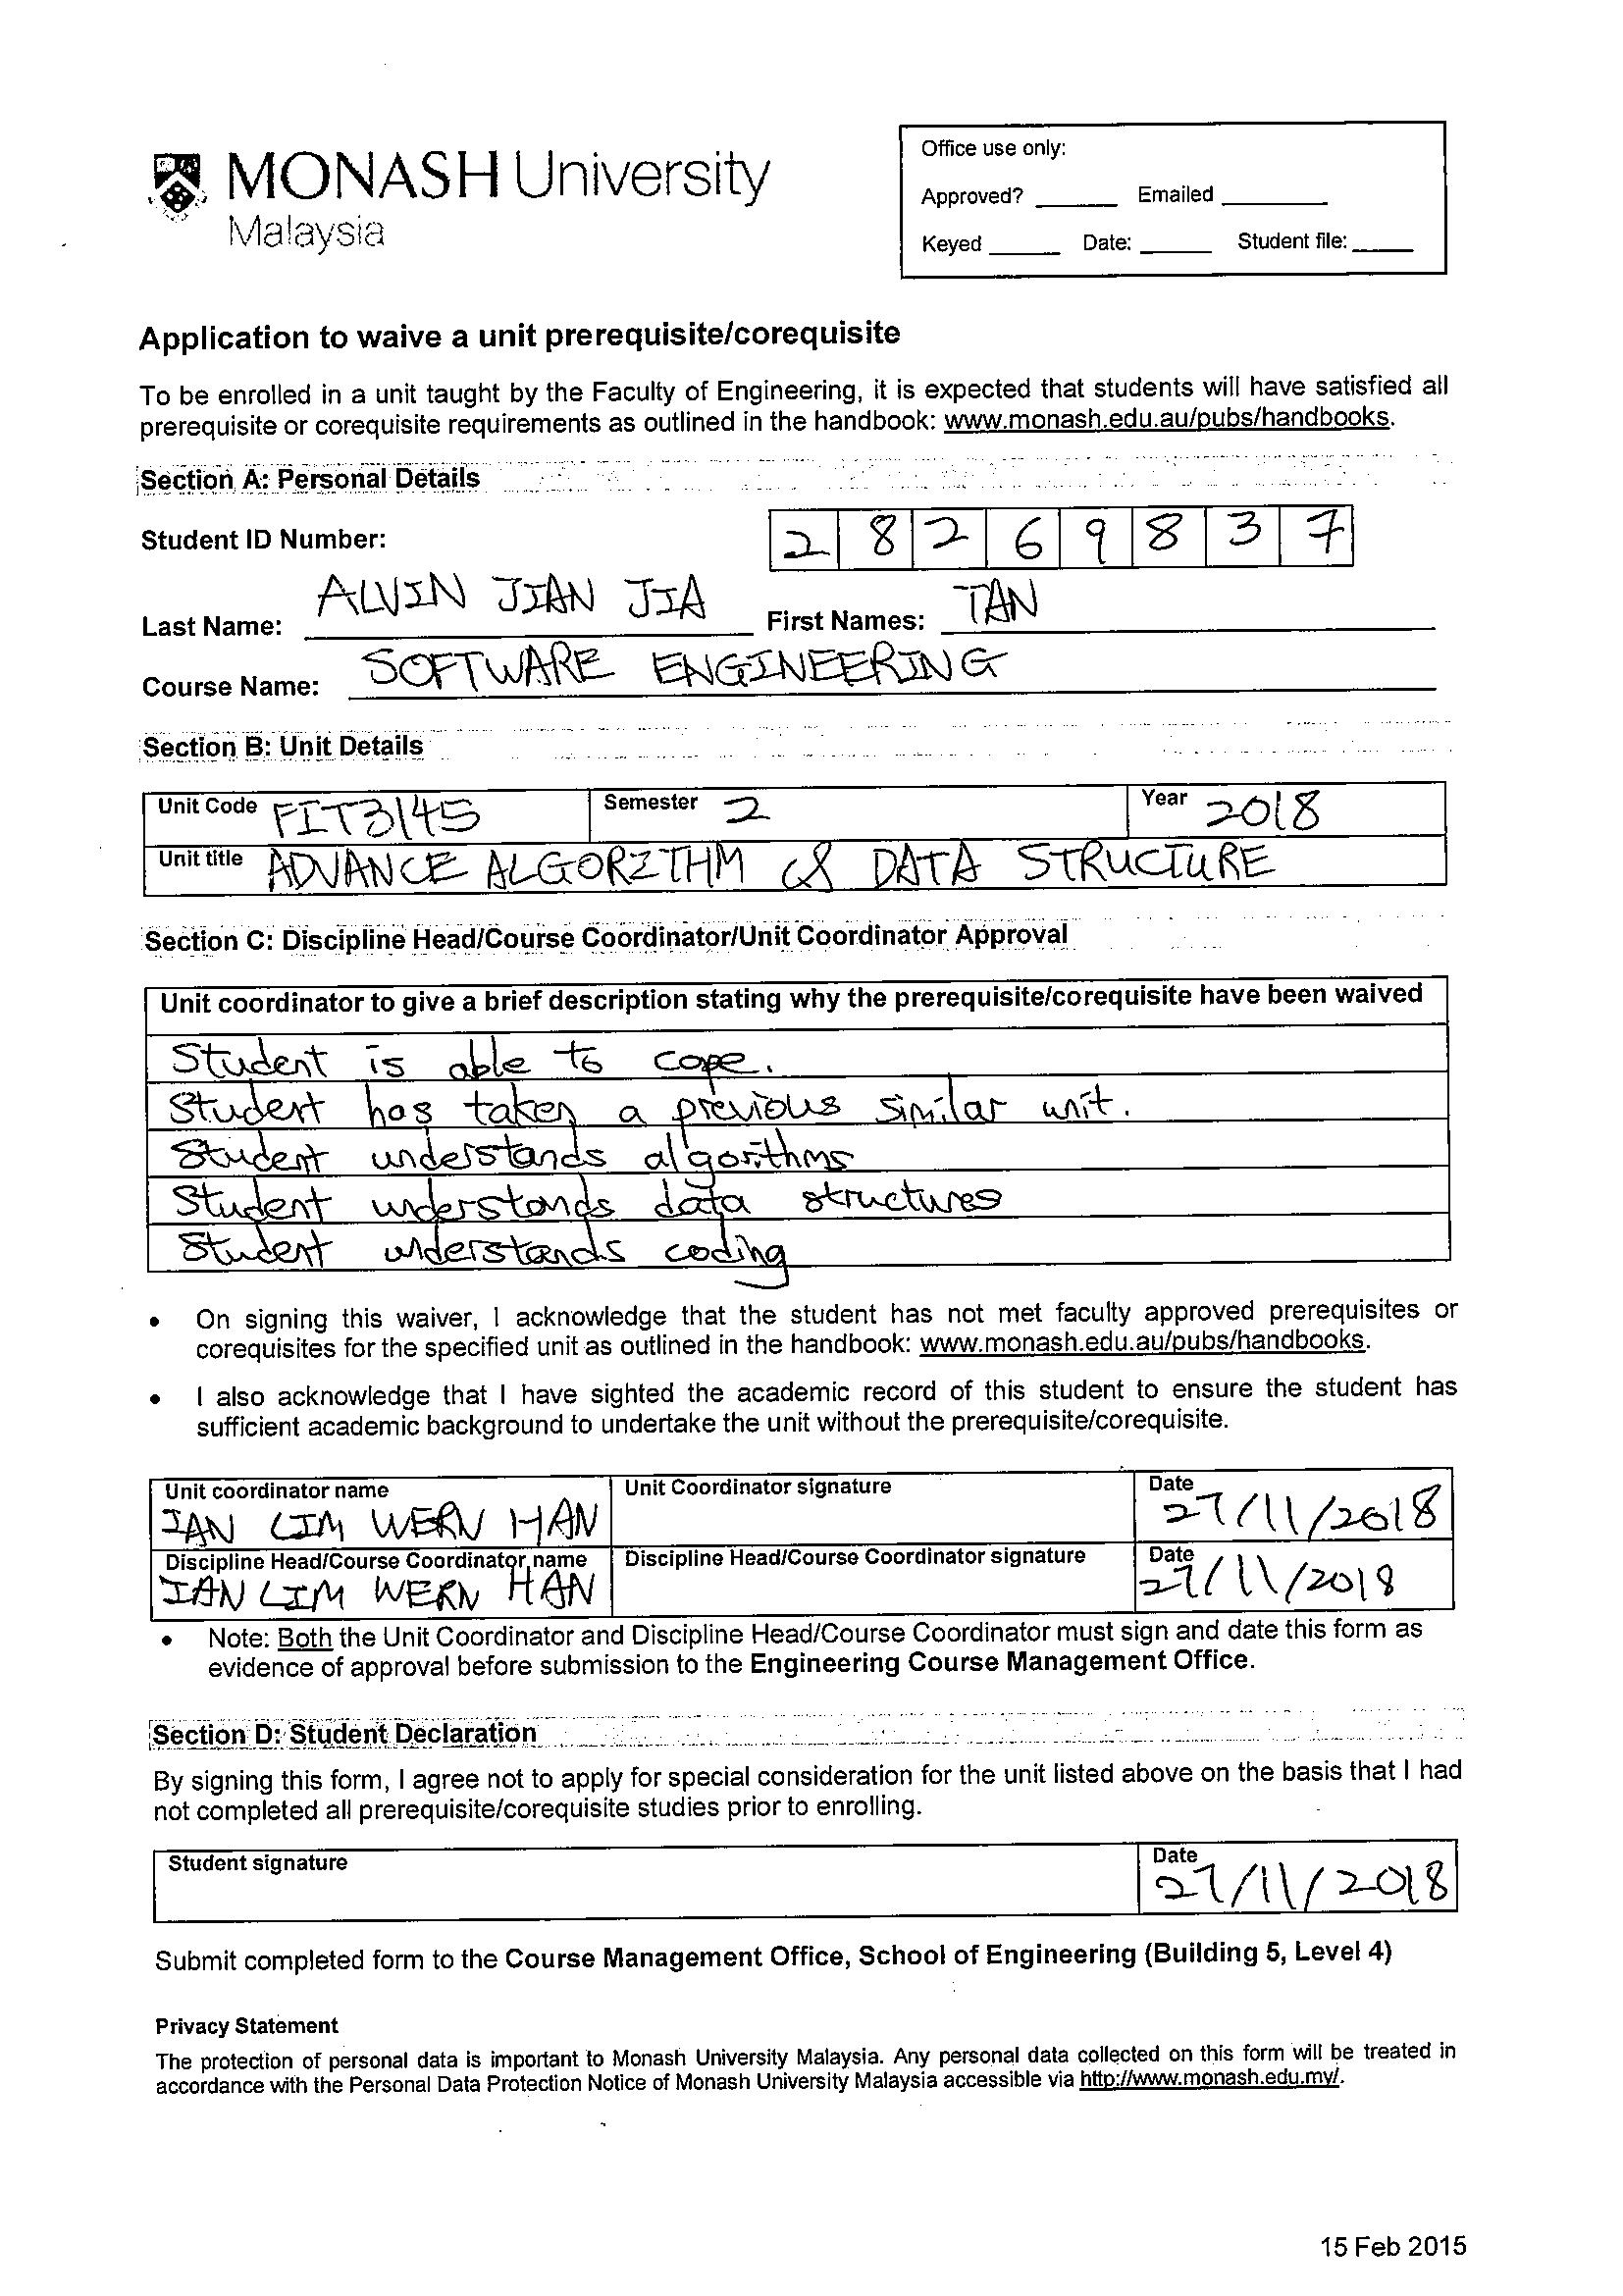 MONASH University
Malaysia
Office use only:
Approved? ______ Emailed ________
Keyed _____ Date: _____ Student file: _____
Application to waive a unit prerequisite/corequisite
To be enrolled in a unit taught by the Faculty of Engineering, it is expected that students will have satisfied all
prerequisite or corequisite requirements as outlined in the handbook: www.monash.edu.au/pubs/handbooks.
Section A: Personal Details
Student ID Number: 2 8 2 6 9 8 3 7
Last Name: ALVIN JIAN JIA First Names: TAN
Course Name: SOFTWARE ENGINEERING
Section B: Unit Details
Unit Code FIT3145 Semester 2 Year 2018
Unit title ADVANCE ALGORITHM & DATA STRUCTURE
Section C: Discipline Head/Course Coordinator/Unit Coordinator Approval
Unit coordinator to give a brief description stating why the prerequisite/corequisite have been waived
Student is able to cope.
Student has taken a previous similar unit.
Student understands algorithms
Student understands data structures
Student understands coding
• On signing this waiver, I acknowledge that the student has not met faculty approved prerequisites or
corequisites for the specified unit as outlined in the handbook: www.monash.edu.au/pubs/handbooks.
• I also acknowledge that I have sighted the academic record of this student to ensure the student has
sufficient academic background to undertake the unit without the prerequisite/corequisite.
Unit coordinator name Unit Coordinator signature Date
IAN LIM WERN HAN 27/11/2018
Discipline Head/Course Coordinator name Discipline Head/Course Coordinator signature Date
IAN LIM WERN HAN 27/11/2018
• Note: Both the Unit Coordinator and Discipline Head/Course Coordinator must sign and date this form as
evidence of approval before submission to the Engineering Course Management Office.
Section D: Student Declaration
By signing this form, I agree not to apply for special consideration for the unit listed above on the basis that I had
not completed all prerequisite/corequisite studies prior to enrolling.
Student signature Date
27/11/2018
Submit completed form to the Course Management Office, School of Engineering (Building 5, Level 4)
Privacy Statement
The protection of personal data is important to Monash University Malaysia. Any personal data collected on this form will be treated in
accordance with the Personal Data Protection Notice of Monash University Malaysia accessible via http://www.monash.edu.my/.
15 Feb 2015